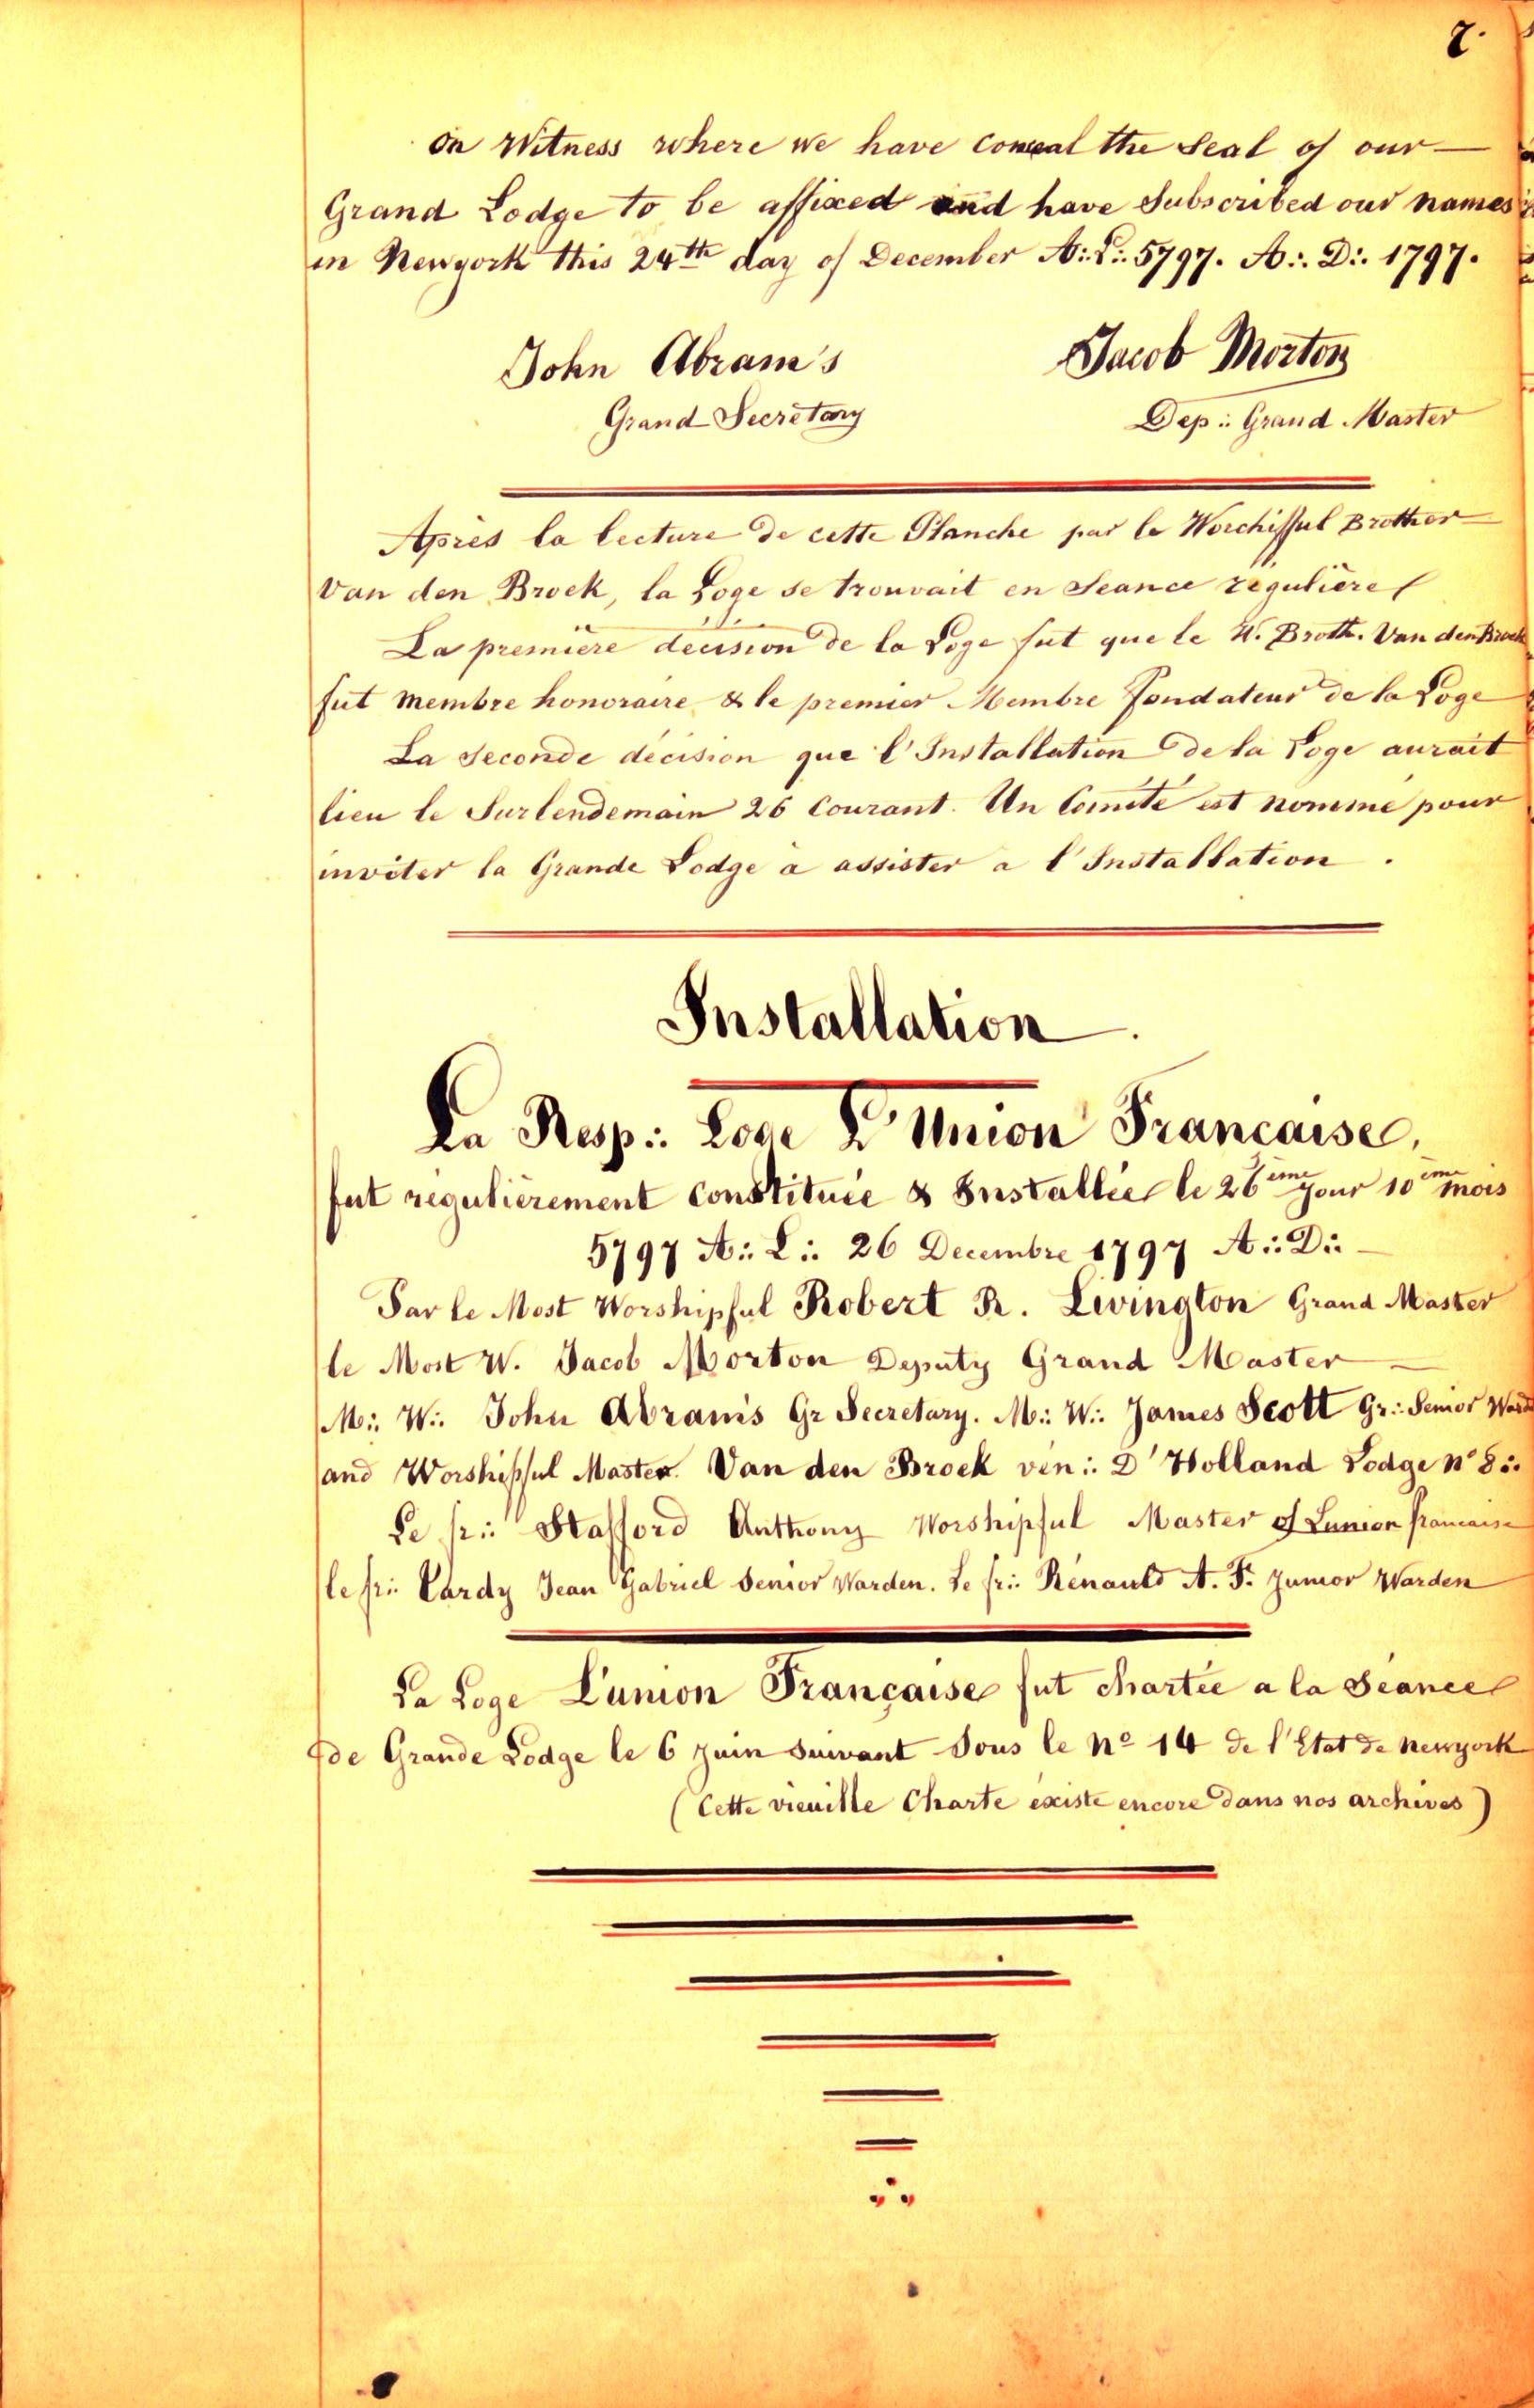 7.
On Witness where we have conseal the Seal of our
Grand Lodge to be affixed and have Subscribed our names
in Newyork this 24th day of December A∴ L∴ 5797. A∴ D∴ 1797.
John Abram's Jacob Morton
Grand Secretary Dep∴ Grand Master
Après la lecture de cette Planche par le Worchipful Brother
Van den Broek, la Loge se trouvait en Séance régulière
La première décision de la Loge fut que le W. Broth. Van den Broek
fut Membre honoraire & le premier Membre fondateur de la Loge
La Seconde décision que l'Installation de la Loge aurait
lieu le Surlendemain 26 Courant. Un Comité est nommé pour
inviter la Grande Lodge a assister a l'Installation.
Installation.
La Resp∴ Loge L'Union Francaise,
fut régulièrement Constituée & Installée le 26ème jour 10ème mois
5797 A∴ L∴ 26 Decembre 1797 A∴ D∴
Par le Most Worshipful Robert R. Livington Grand Master
le Most W. Jacob Morton Deputy Grand Master
M∴ W∴ John Abrams Gr Secretary. M∴ W∴ James Scott Gr∴ Senior Ward
and Worshipful Master. Van den Broek ven∴ D'Holland Lodge n° 8∴
Le fr∴ Stafford Anthony Worshipful Master of Lunion francaise
le fr∴ Tardy Jean Gabriel Senior Warden. Le fr∴ Rénauld A. F. Junior Warden
La Loge L'union Française fut chartée a la Séance
de Grande Lodge le 6 Juin Suivant Sous le No 14 de l'Etat de Newyork
(Cette vieuille Charte éxiste encore dans nos archives)